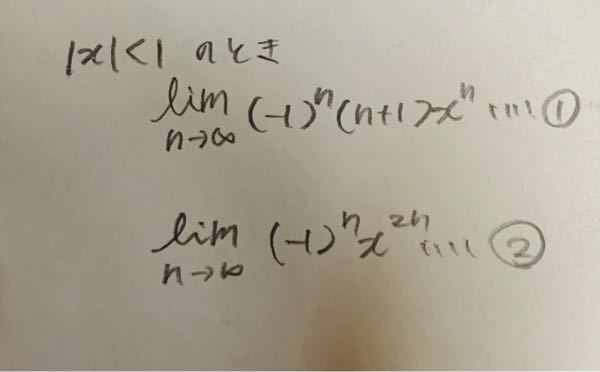 |x|<1 のとき
lim (-1)^n (n+1)x^n ‥‥ ①
n→∞
lim (-1)^n x^{2n} ‥‥ ②
n→∞